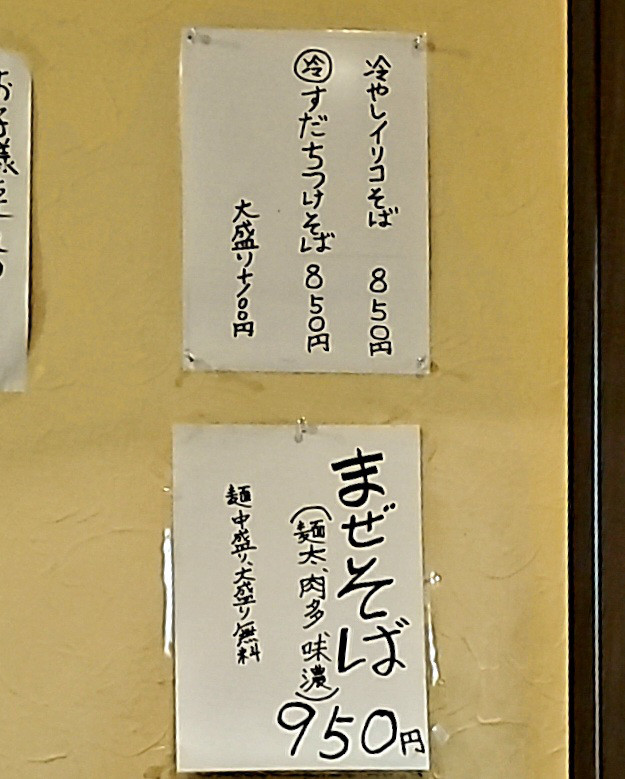 冷やしイリコそば 850円
㋹すだちつけそば 850円
大盛り+100円
まぜそば
(麺太、肉多 味濃)
950円
麺中盛り、大盛り無料
お子様